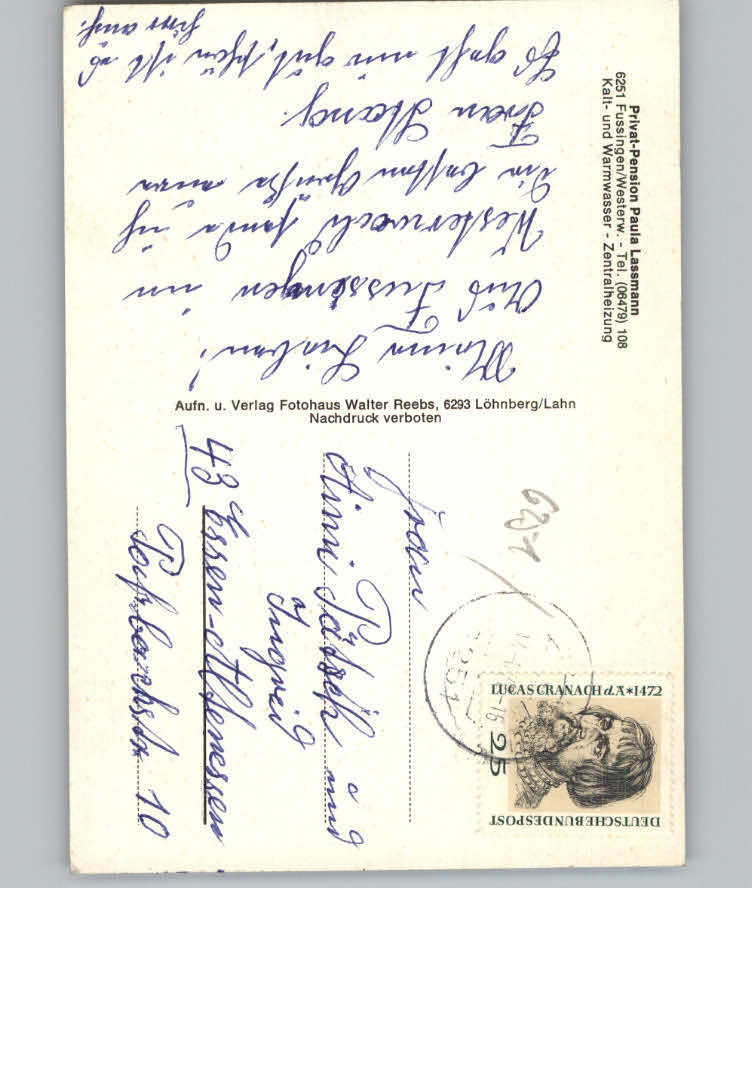 Privat-Pension Paula Lassmann
6251 Fussingen/Westerw. - Tel. (06479) 108
Kalt- und Warmwasser - Zentralheizung
Meine Lieben!
Aus Fussingen im
Westerwald sende ich
die besten Grüße eure
Frau Stang.
Es geht mir gut, schön ist es
hier auch.
Aufn. u. Verlag Fotohaus Walter Reebs, 6293 Löhnberg/Lahn
Nachdruck verboten
6251
DEUTSCHE BUNDESPOST
25
LUCAS CRANACH d.Ä*1472
Frau
Änni Pötsch und
Ingrid
43 Essen-Altenessen
10